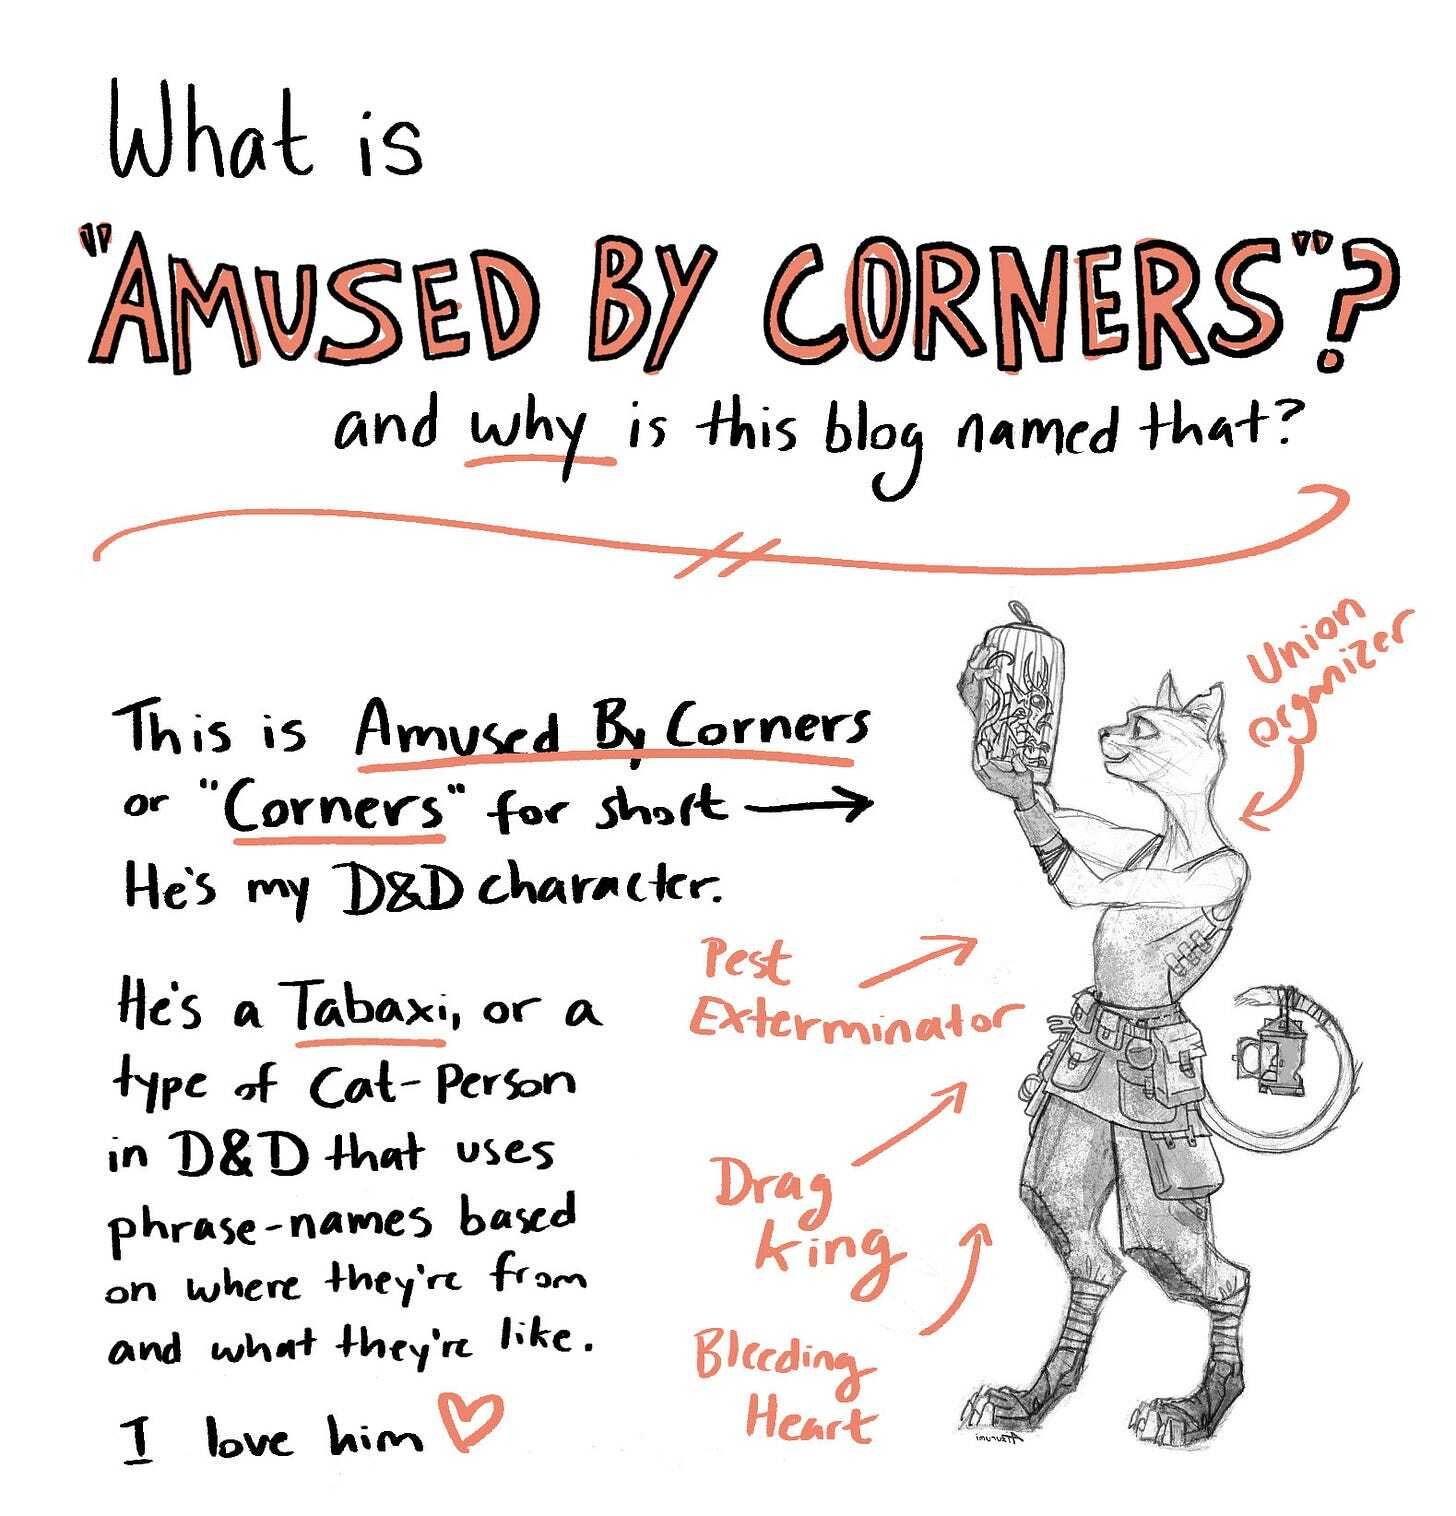 What is
"AMUSED BY CORNERS"?
and why is this blog named that?
Union
organizer
This is Amused By Corners
or "Corners" for short
He's my D&D character.
Pest
Exterminator
He's a Tabaxi, or a
type of Cat-Person
in D&D that uses
phrase-names based
on where they're from
and what they're like.
Drag
King
Bleeding
Heart
I love him